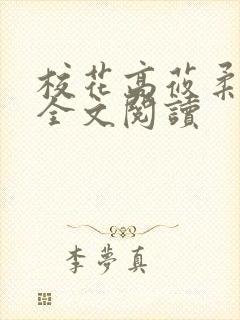 校花高莜柔
全文閱讀
李夢真